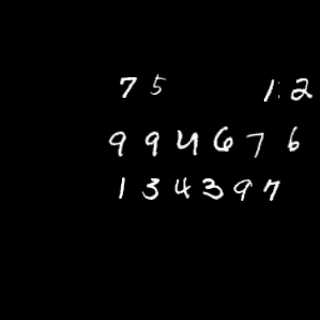 7 5 1 2
9 9 4 6 7 6
1 3 4 3 9 7